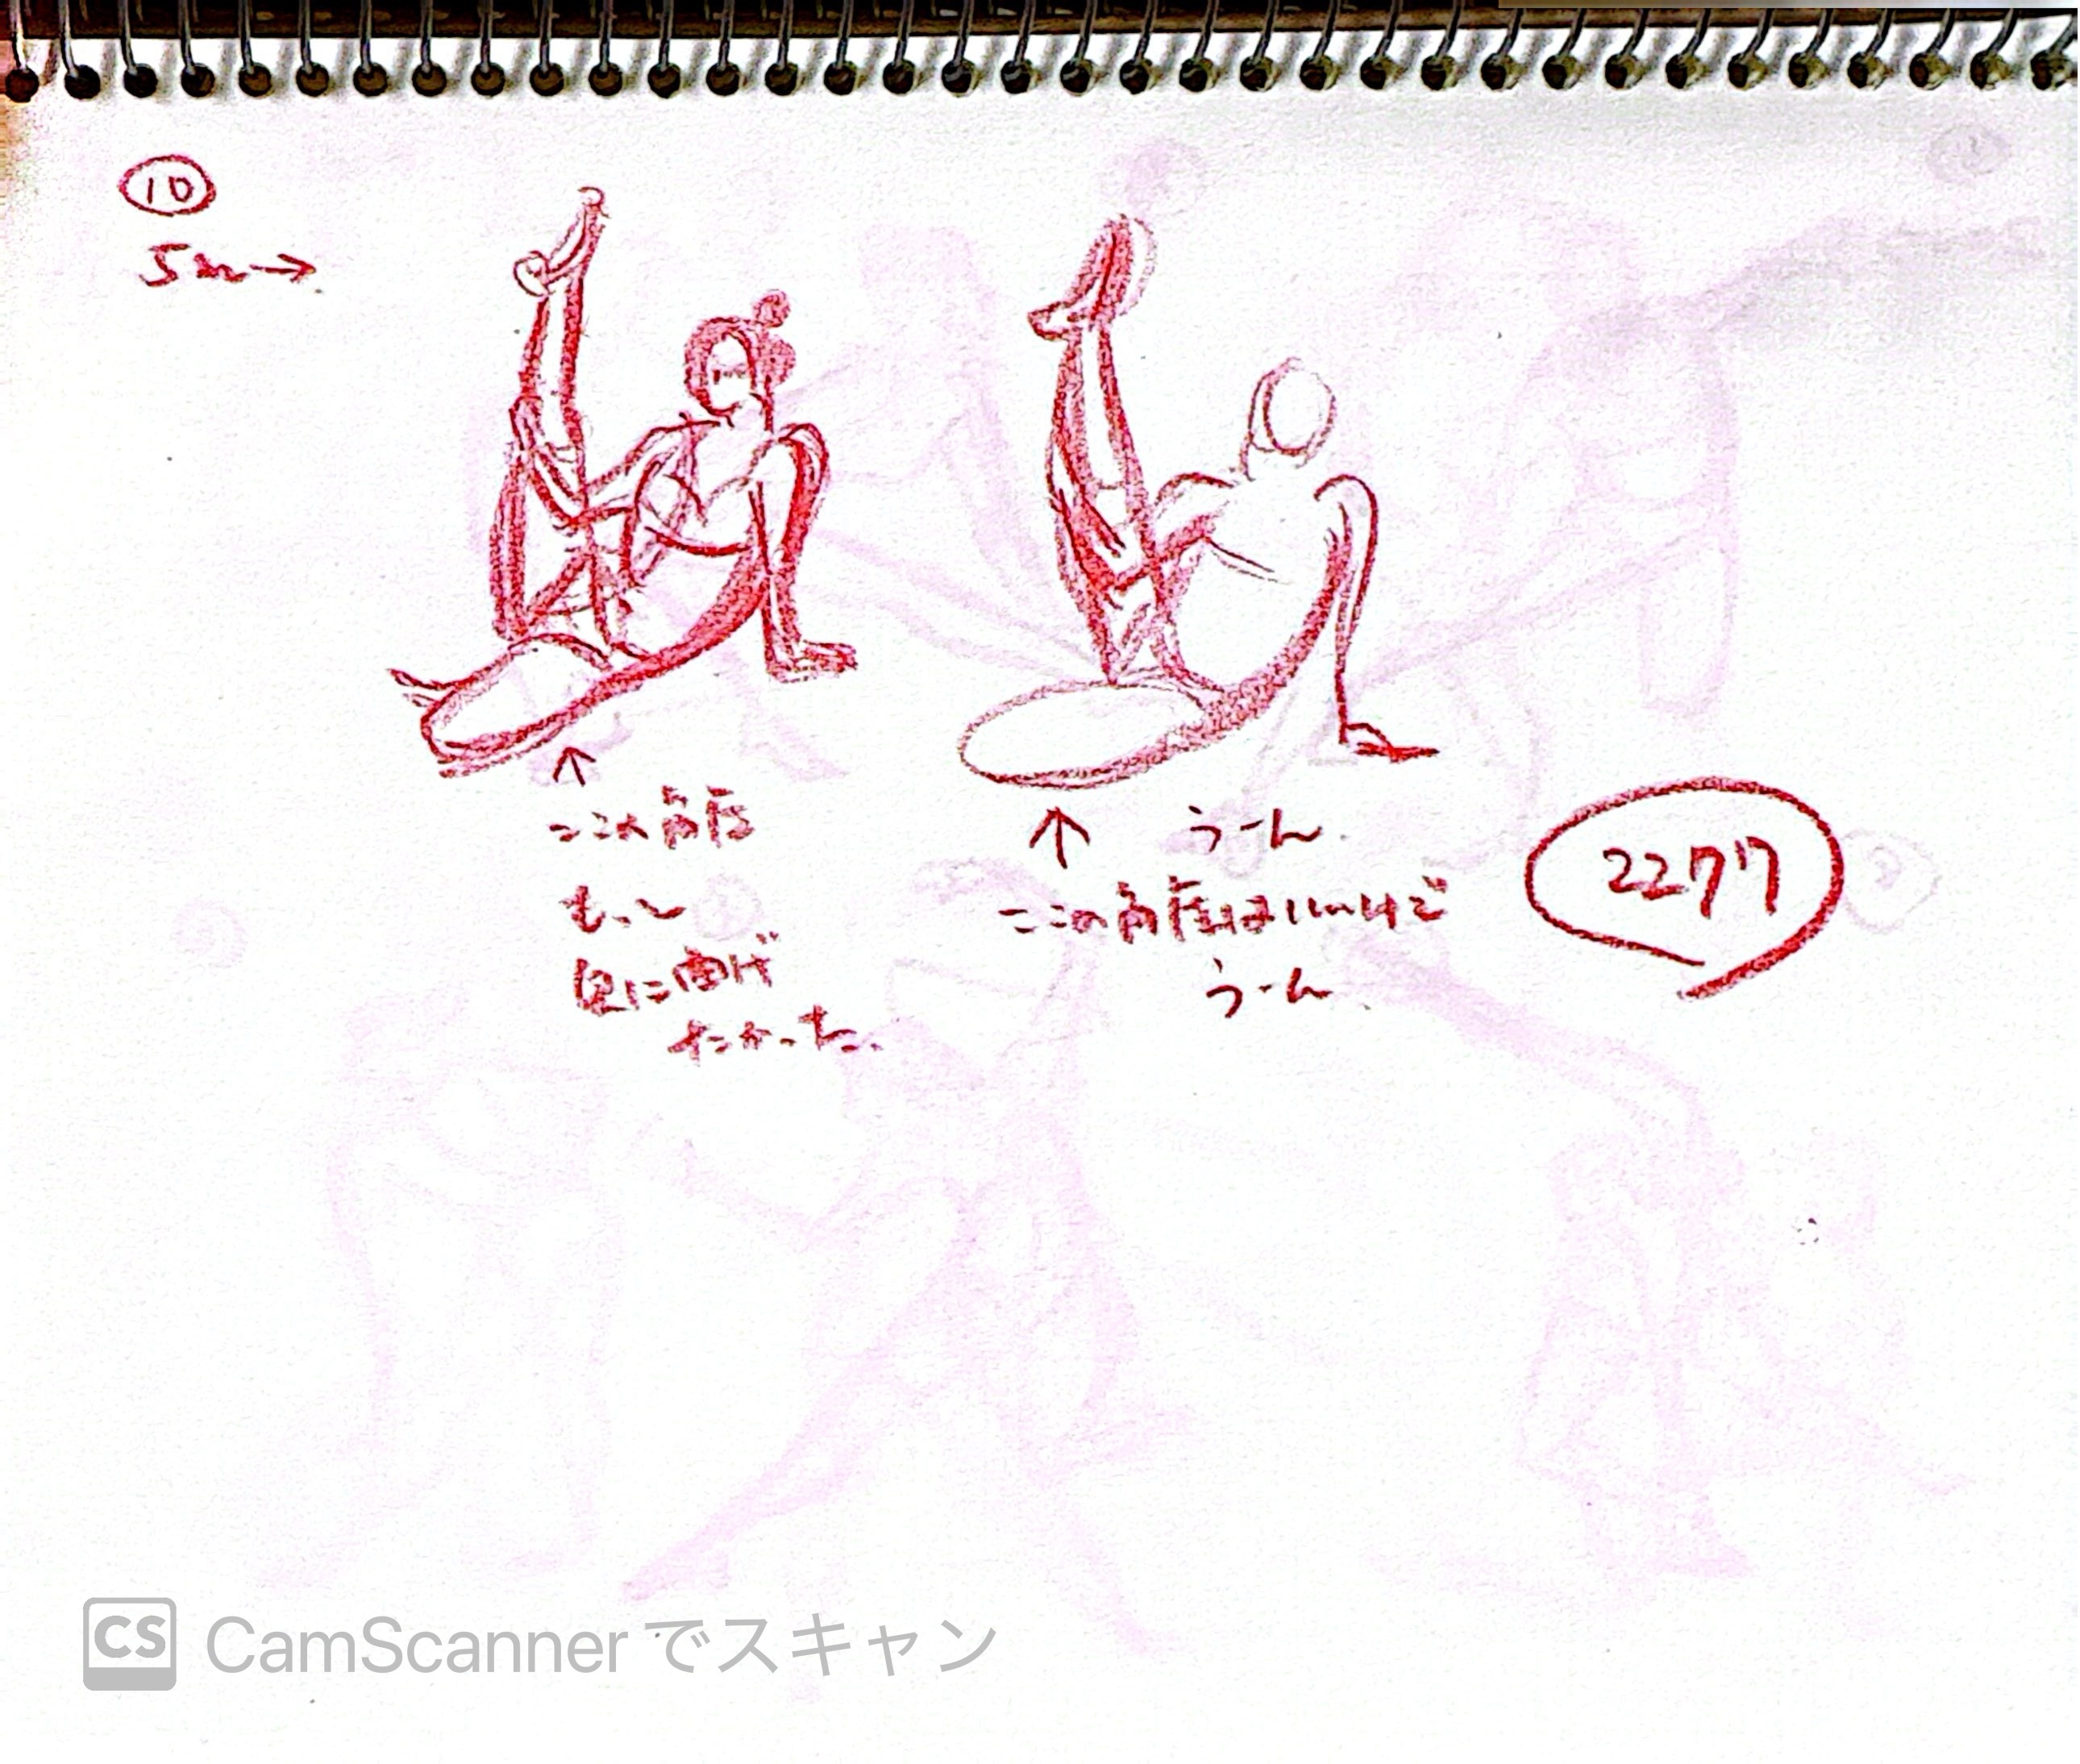 10
5m→
↑
ここの角度
もっと
急に曲げ
たかった.
↑
うーん.
ここの角度はいいけど
うーん.
2277
CS CamScanner でスキャン